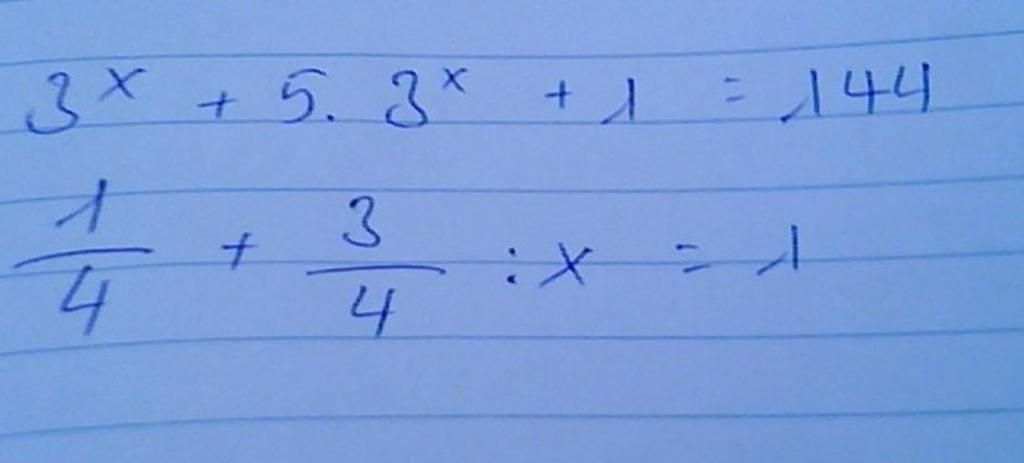 3ˣ + 5. 3ˣ + 1 = 144
1/4 + 3/4 : x = 1